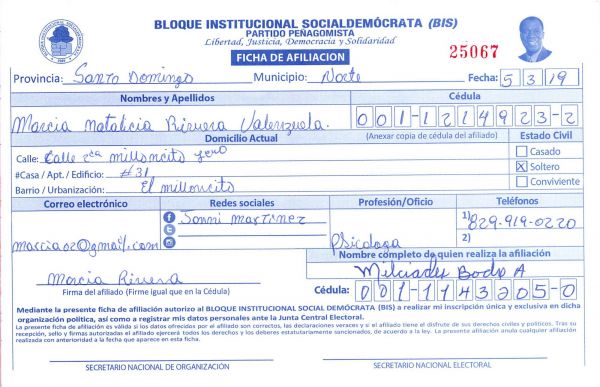 BLOQUE INSTITUCIONAL SOCIALDEMÓCRATA (BIS)
PARTIDO PEÑAGOMISTA
Libertad, Justicia, Democracia y Solidaridad
FICHA DE AFILIACION
25067
Provincia: Santo Domingo Municipio: Norte Fecha: 5 3 19
Nombres y Apellidos Cédula
Marcia Natalicia Rivera Valenzuela. 001-1214923-2
Domicilio Actual (Anexar copia de cédula del afiliado) Estado Civil
Calle: Calle 2da milloncito
#Casa / Apt. / Edificio: #31
Barrio / Urbanización: El milloncito
Casado
X Soltero
Conviviente
Correo electrónico Redes sociales Profesión/Oficio Teléfonos
Sonni Martinez
1) 829-919-0220
marcia02@gmail.com Psicologa 2)
Nombre completo de quien realiza la afiliación
Marcia Rivera Melciades A
Firma del afiliado (Firme igual que en la Cédula) Cédula: 001-1143205-0
Mediante la presente ficha de afiliación autorizo al BLOQUE INSTITUCIONAL SOCIAL DEMÓCRATA (BIS) a realizar mi inscripción única y exclusiva en dicha
organización política, así como a registrar mis datos personales ante la Junta Central Electoral.
La presente ficha de afiliación es válida si los datos ofrecidos por el afiliado son correctos, las declaraciones veraces y si el afiliado tiene el disfrute de sus derechos civiles y políticos. Tras su
recepción, sello y firmas autorizadas el afiliado ejercerá todos los derechos y los deberes estatutariamente sancionados, de acuerdo a la ley. La presente afiliación anula cualquier afiliación
realizada con anterioridad a la fecha que aparece en esta ficha.
SECRETARIO NACIONAL DE ORGANIZACIÓN SECRETARIO NACIONAL ELECTORAL